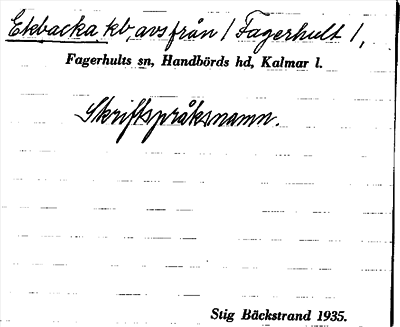 Ekbacka, kb, avs från 1 Fagerhult 1,
Fagerhults sn, Handbörds hd, Kalmar l.
Skriftspråksnamn.
Stig Bäckstrand 1935.